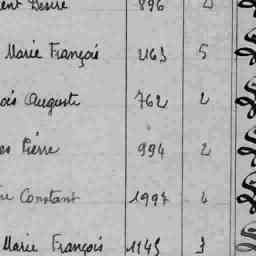 Désiré 896
Marie François 2163 5
Auguste 762 2
Pierre 994 2
Constant 1997 4
Marie François 1143 3